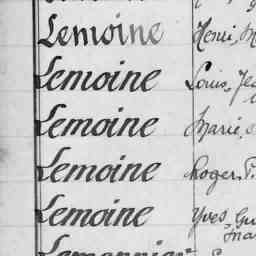 Lemoine Henri, M
Lemoine Louis, Je
Lemoine Marie,
Lemoine Roger, P.
Lemoine Yves Gu
Lemonnier